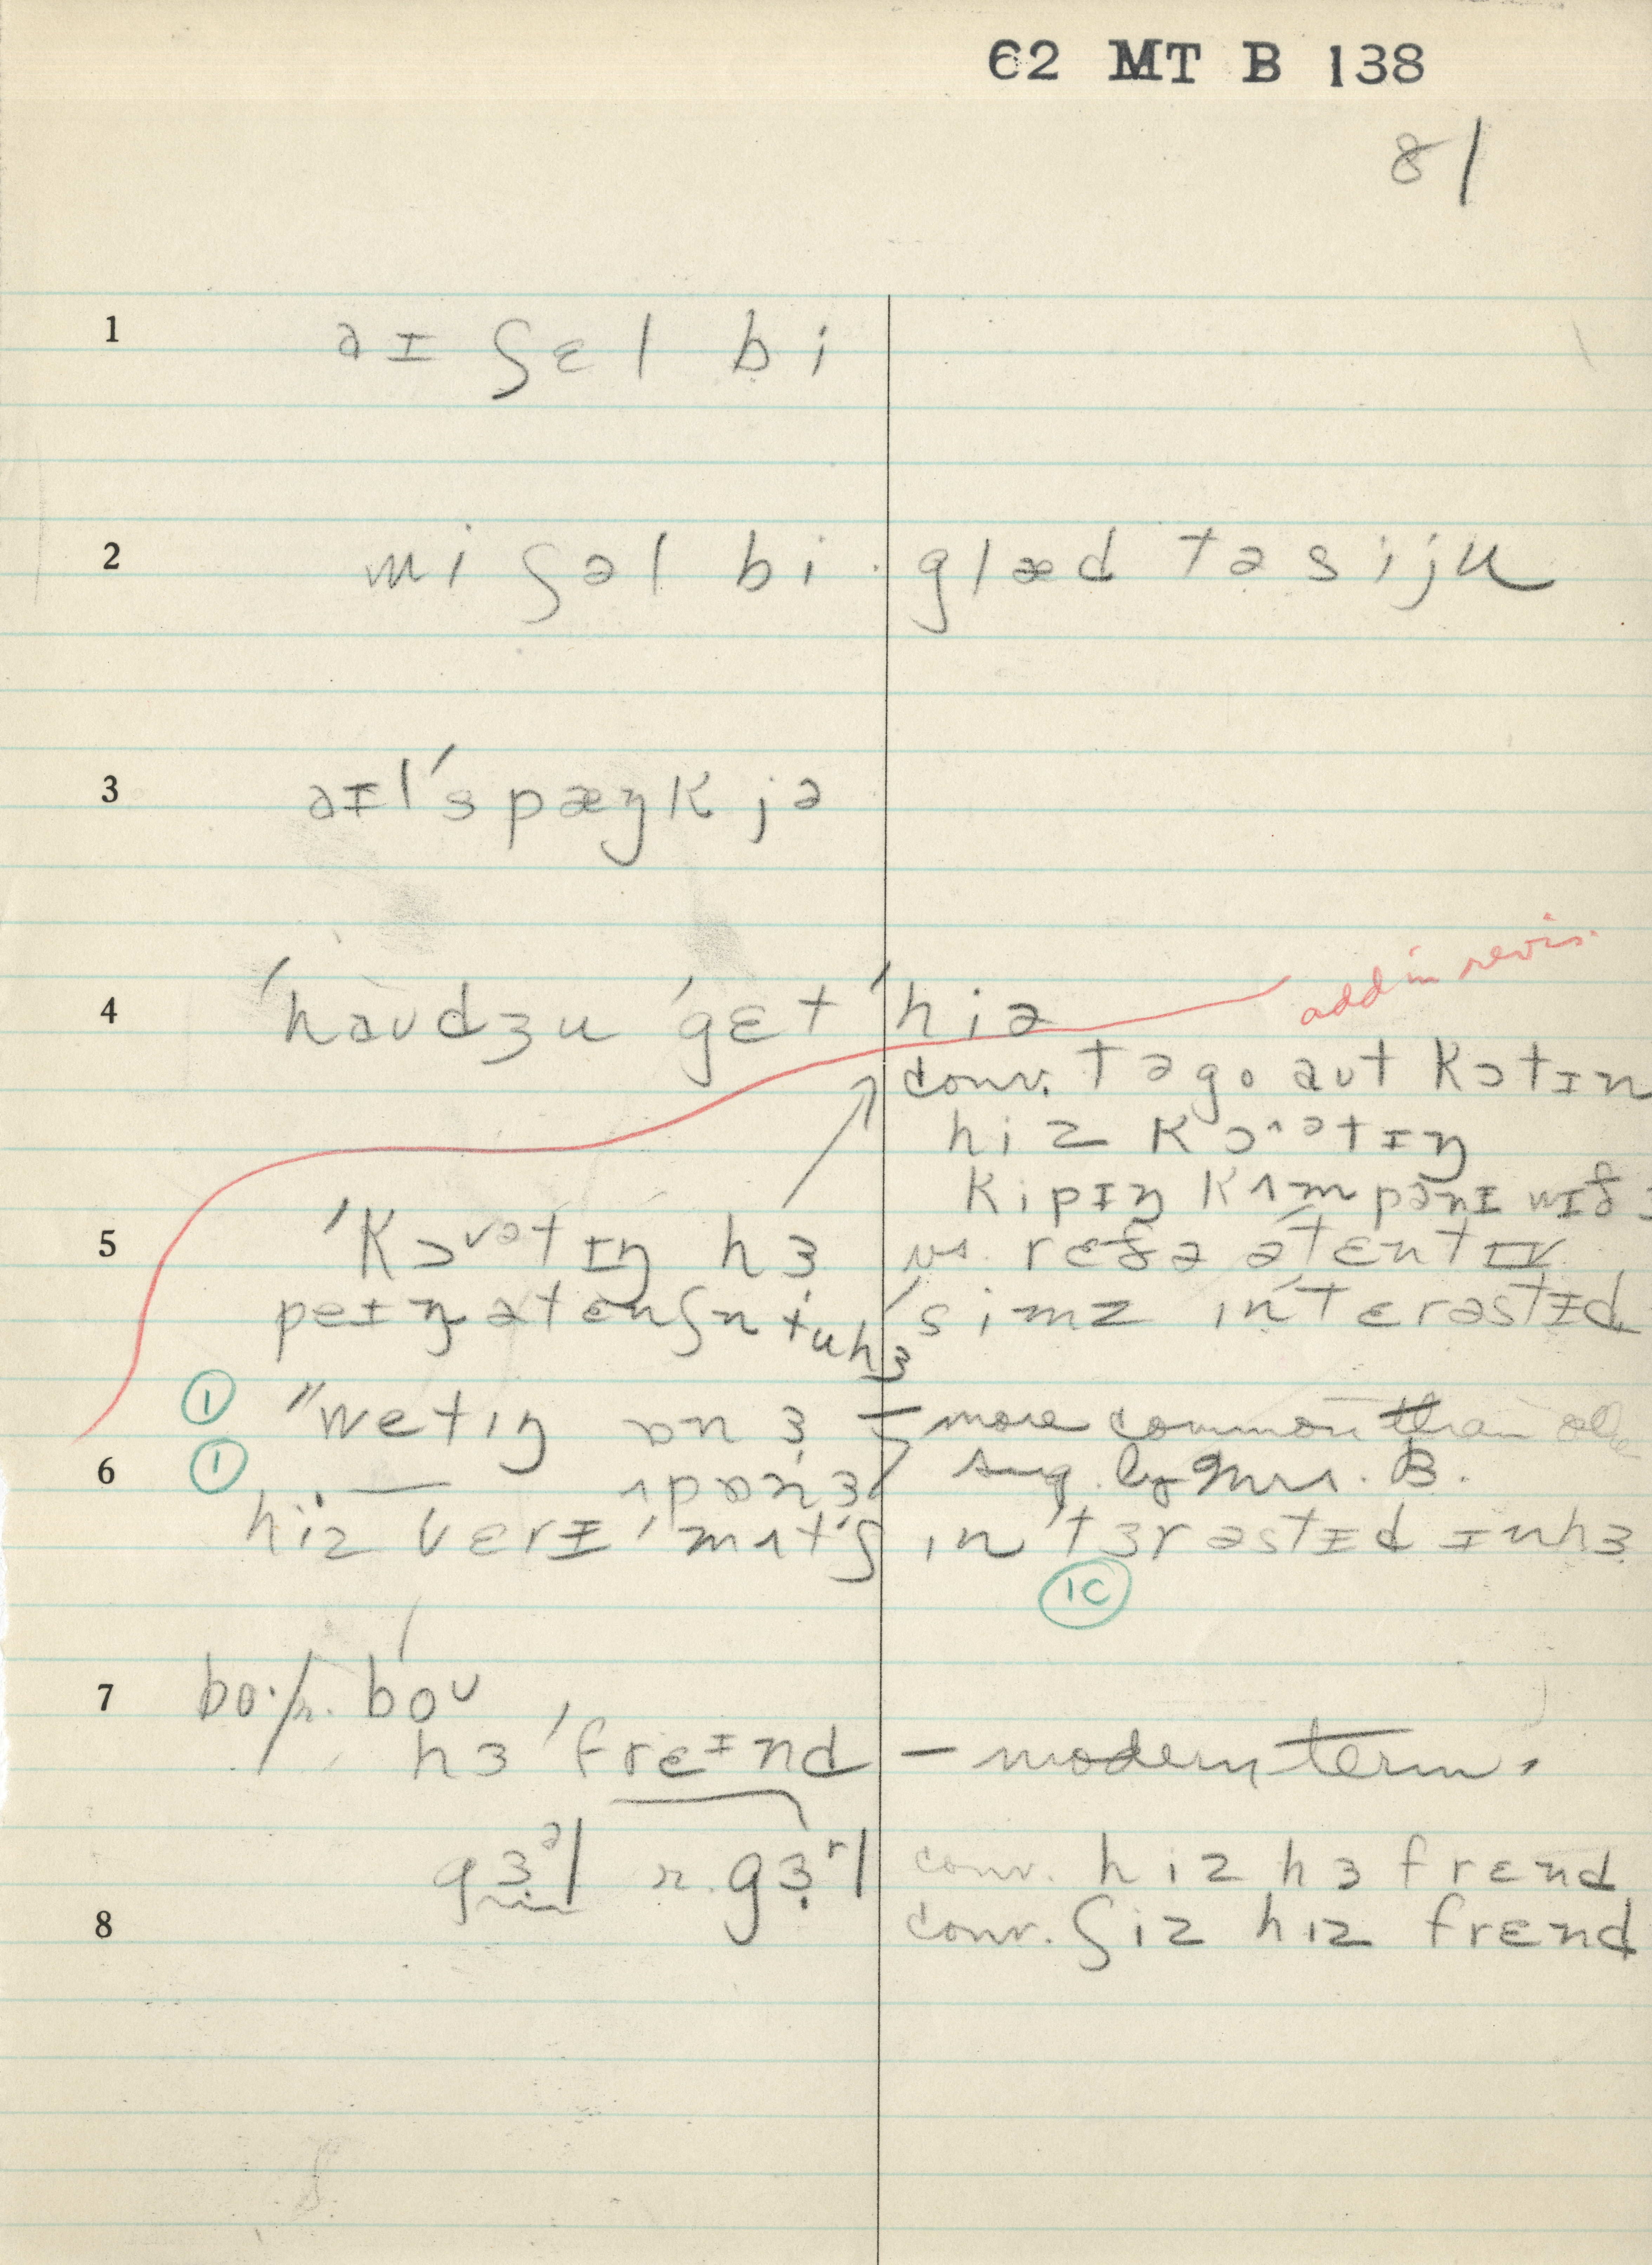 62 MT B 138
81
1 aɪ ʃɛl bi
2 wi ʃəl bi · glæd tə siju
3 aɪl ˈspæŋk jə
4 ˈhaʊdʒu ˈgɛt ˈhiə
add in revis.
conv. tə go aʊt kɔtɪn
hiz kɔˆᵊtɪŋ
kipɪŋ kʌmpənɪ wɪð
5 ˈkɔᵛᵊtɪŋ hɜ vs. rɛðə ətɛntɪv
peɪŋ ətɛnʃn tu hɜ ˈsimz ɪnˈtɛrəstɪd
① "wetɪŋ ɒn ɜ – more common than
6 ① ʌpɒn ɜ sug. by Mrs. B.
hiz vɛrɪ ˈmʌtʃ ɪnˈtɜrəstɪd ɪn hɜ
1C
7 bo·/r. boᵘ
hɜ ˈfrɛɪnd – modern term.
gɜᵊl r. gɜʳl conv. hiz hɜ frɛnd
8 conv. ʃiz hɪz frɛnd